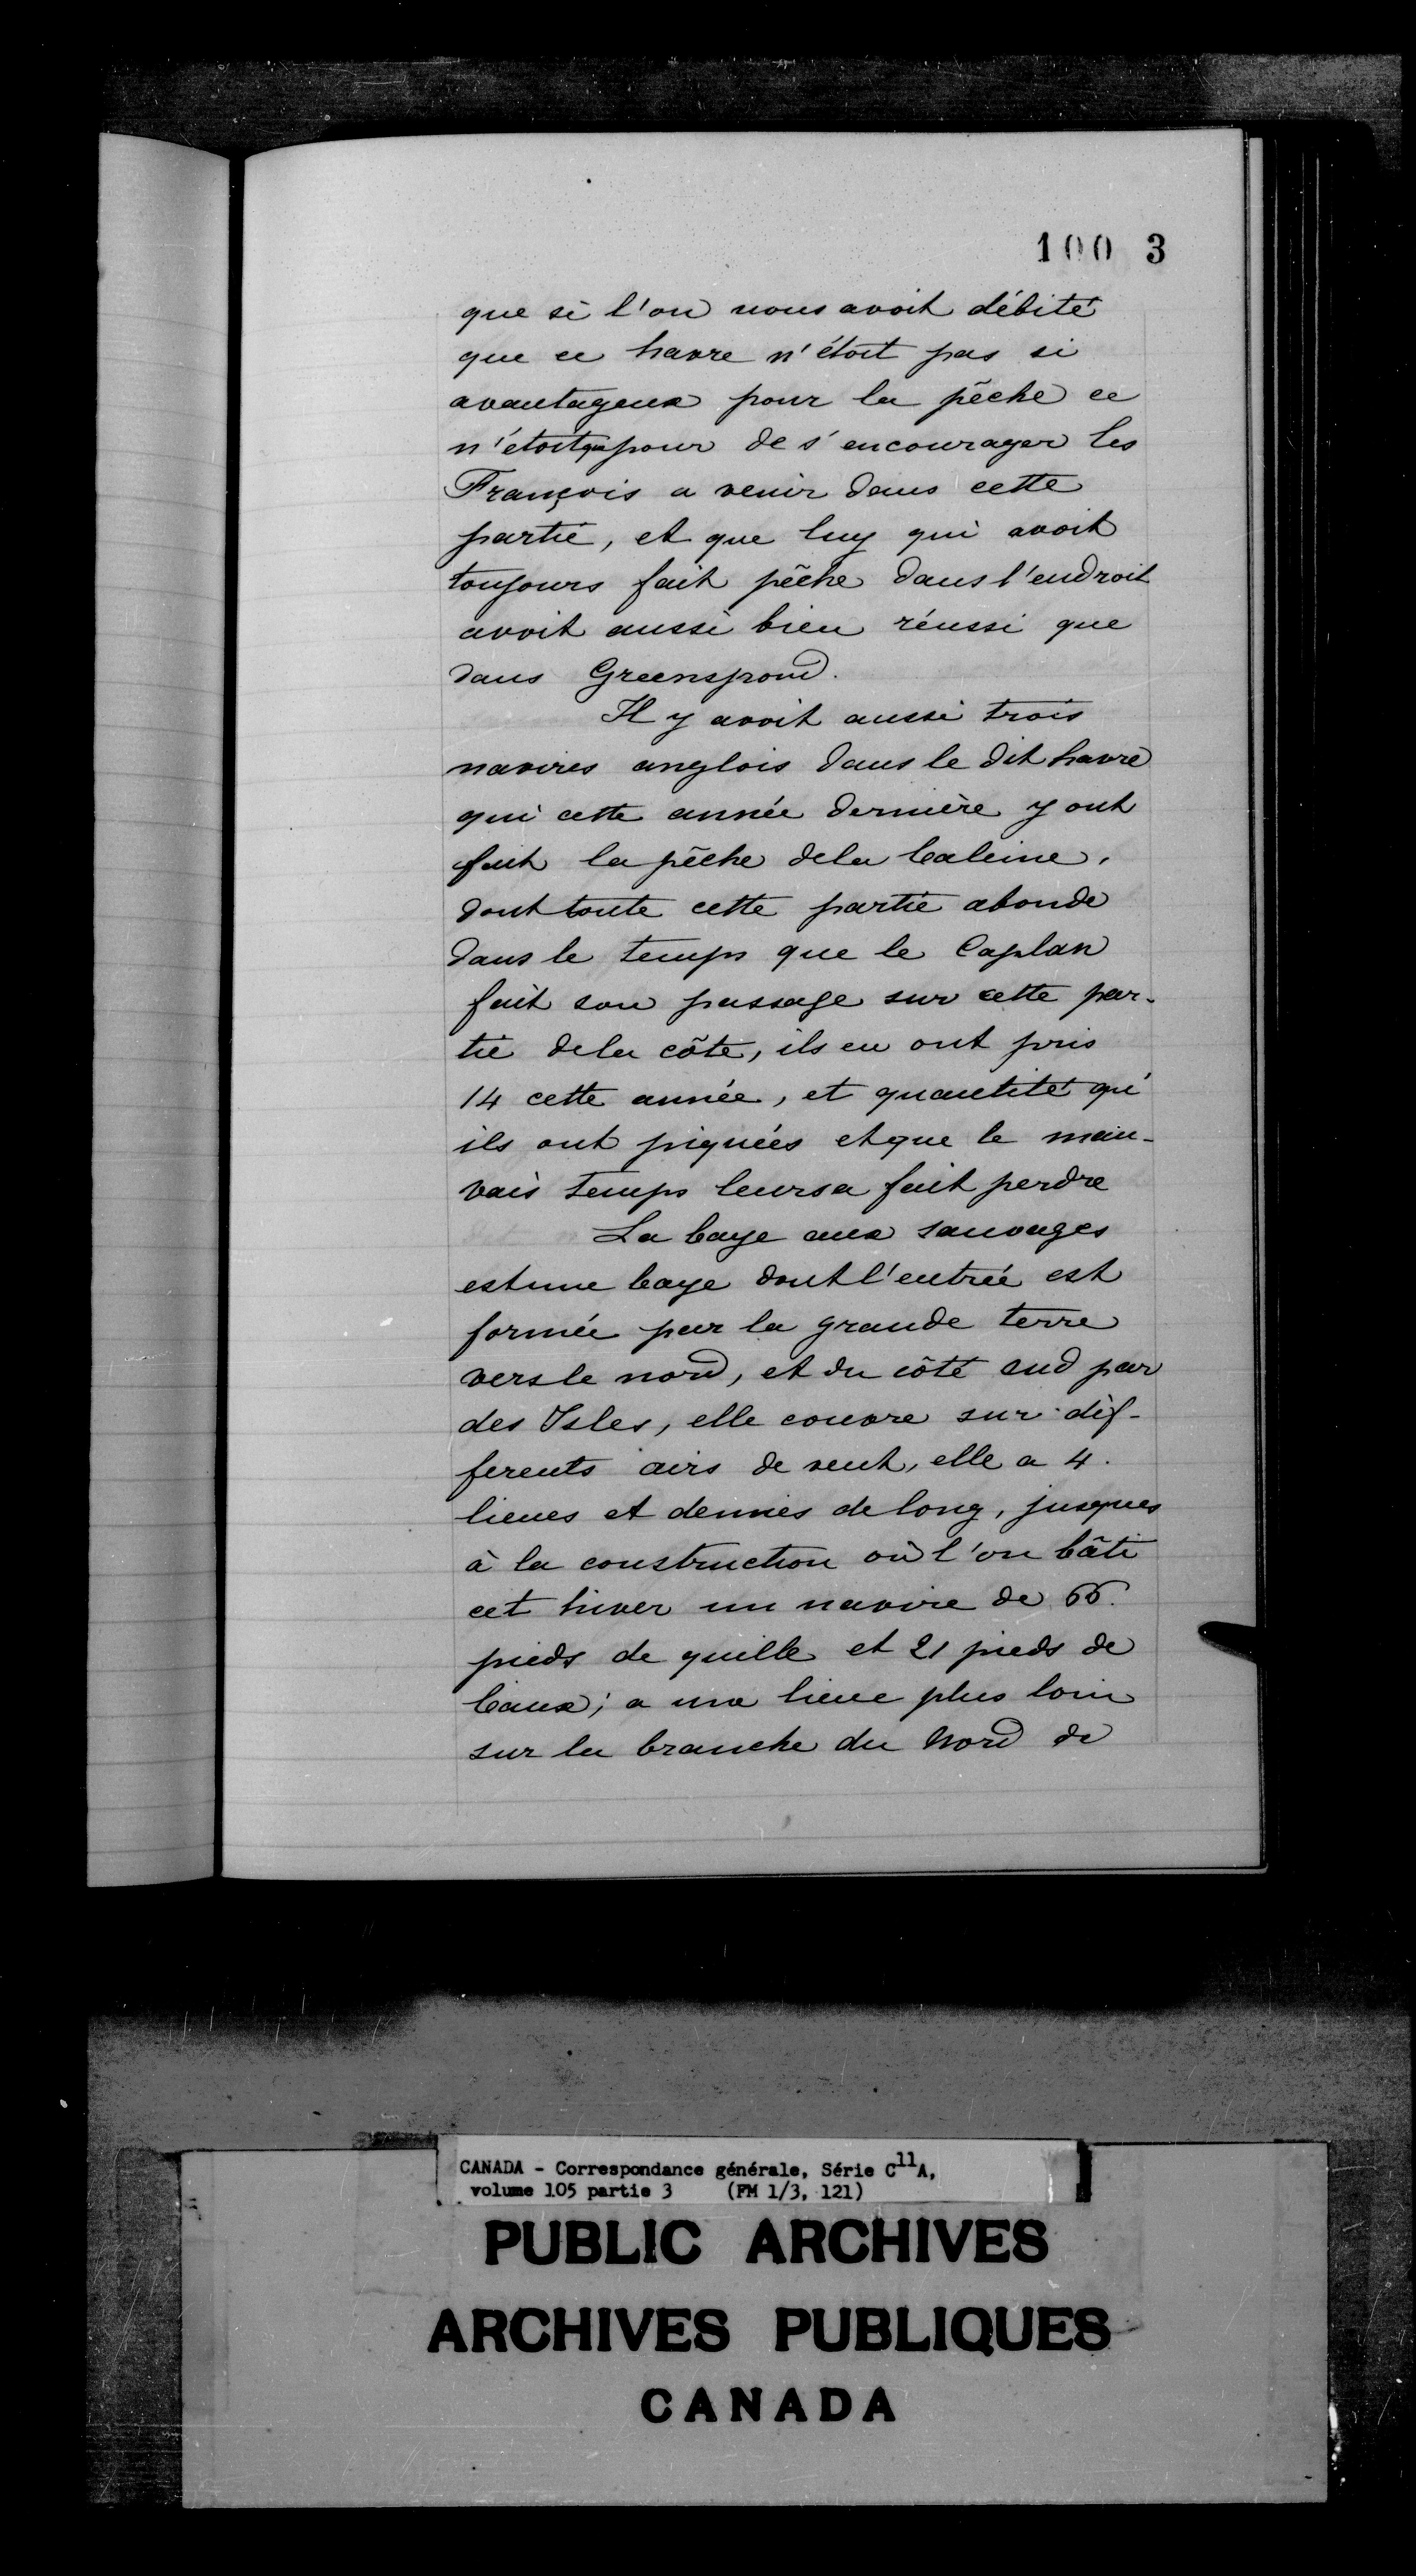 100 3
que si l'on nous avoit débité
que ce havre n'étoit pas si
avantageux pour la pêche ce
n'étoit que pour de s'encourager les
François a venir dans cette
partie, et que luy qui avoit
toujours fait pêche dans l'endroit
avoit aussi bien réussi que
dans Greenspond.
Il y avoit aussi trois
navires anglois dans le dit havre
qui cette année dernière y ont
fait la pêche dela baleine,
dont toute cette partie abonde
dans le temps que le Caplan
fait son passage sur cette par-
tie dela côte, ils en ont pris
14 cette année, et quantité qu'
ils ont piquées et que le mau-
vais temps leurs a fait perdre
La baye aux sauvages
est une baye dont l'entrée est
formée par la grande terre
vers le nord, et du côté sud par
des Isles, elle couvre sur dif-
ferents airs de vent, elle a 4.
lieues et demies de long, jusques
à la construction où l'on bâti
cet hiver un navire de 66.
pieds de quille et 21 pieds de
baux; a une lieue plus loin
sur la branche du Nord de
CANADA - Correspondance générale, Série C11A,
volume 105 partie 3 (FM 1/3, 121)
PUBLIC ARCHIVES
ARCHIVES PUBLIQUES
CANADA